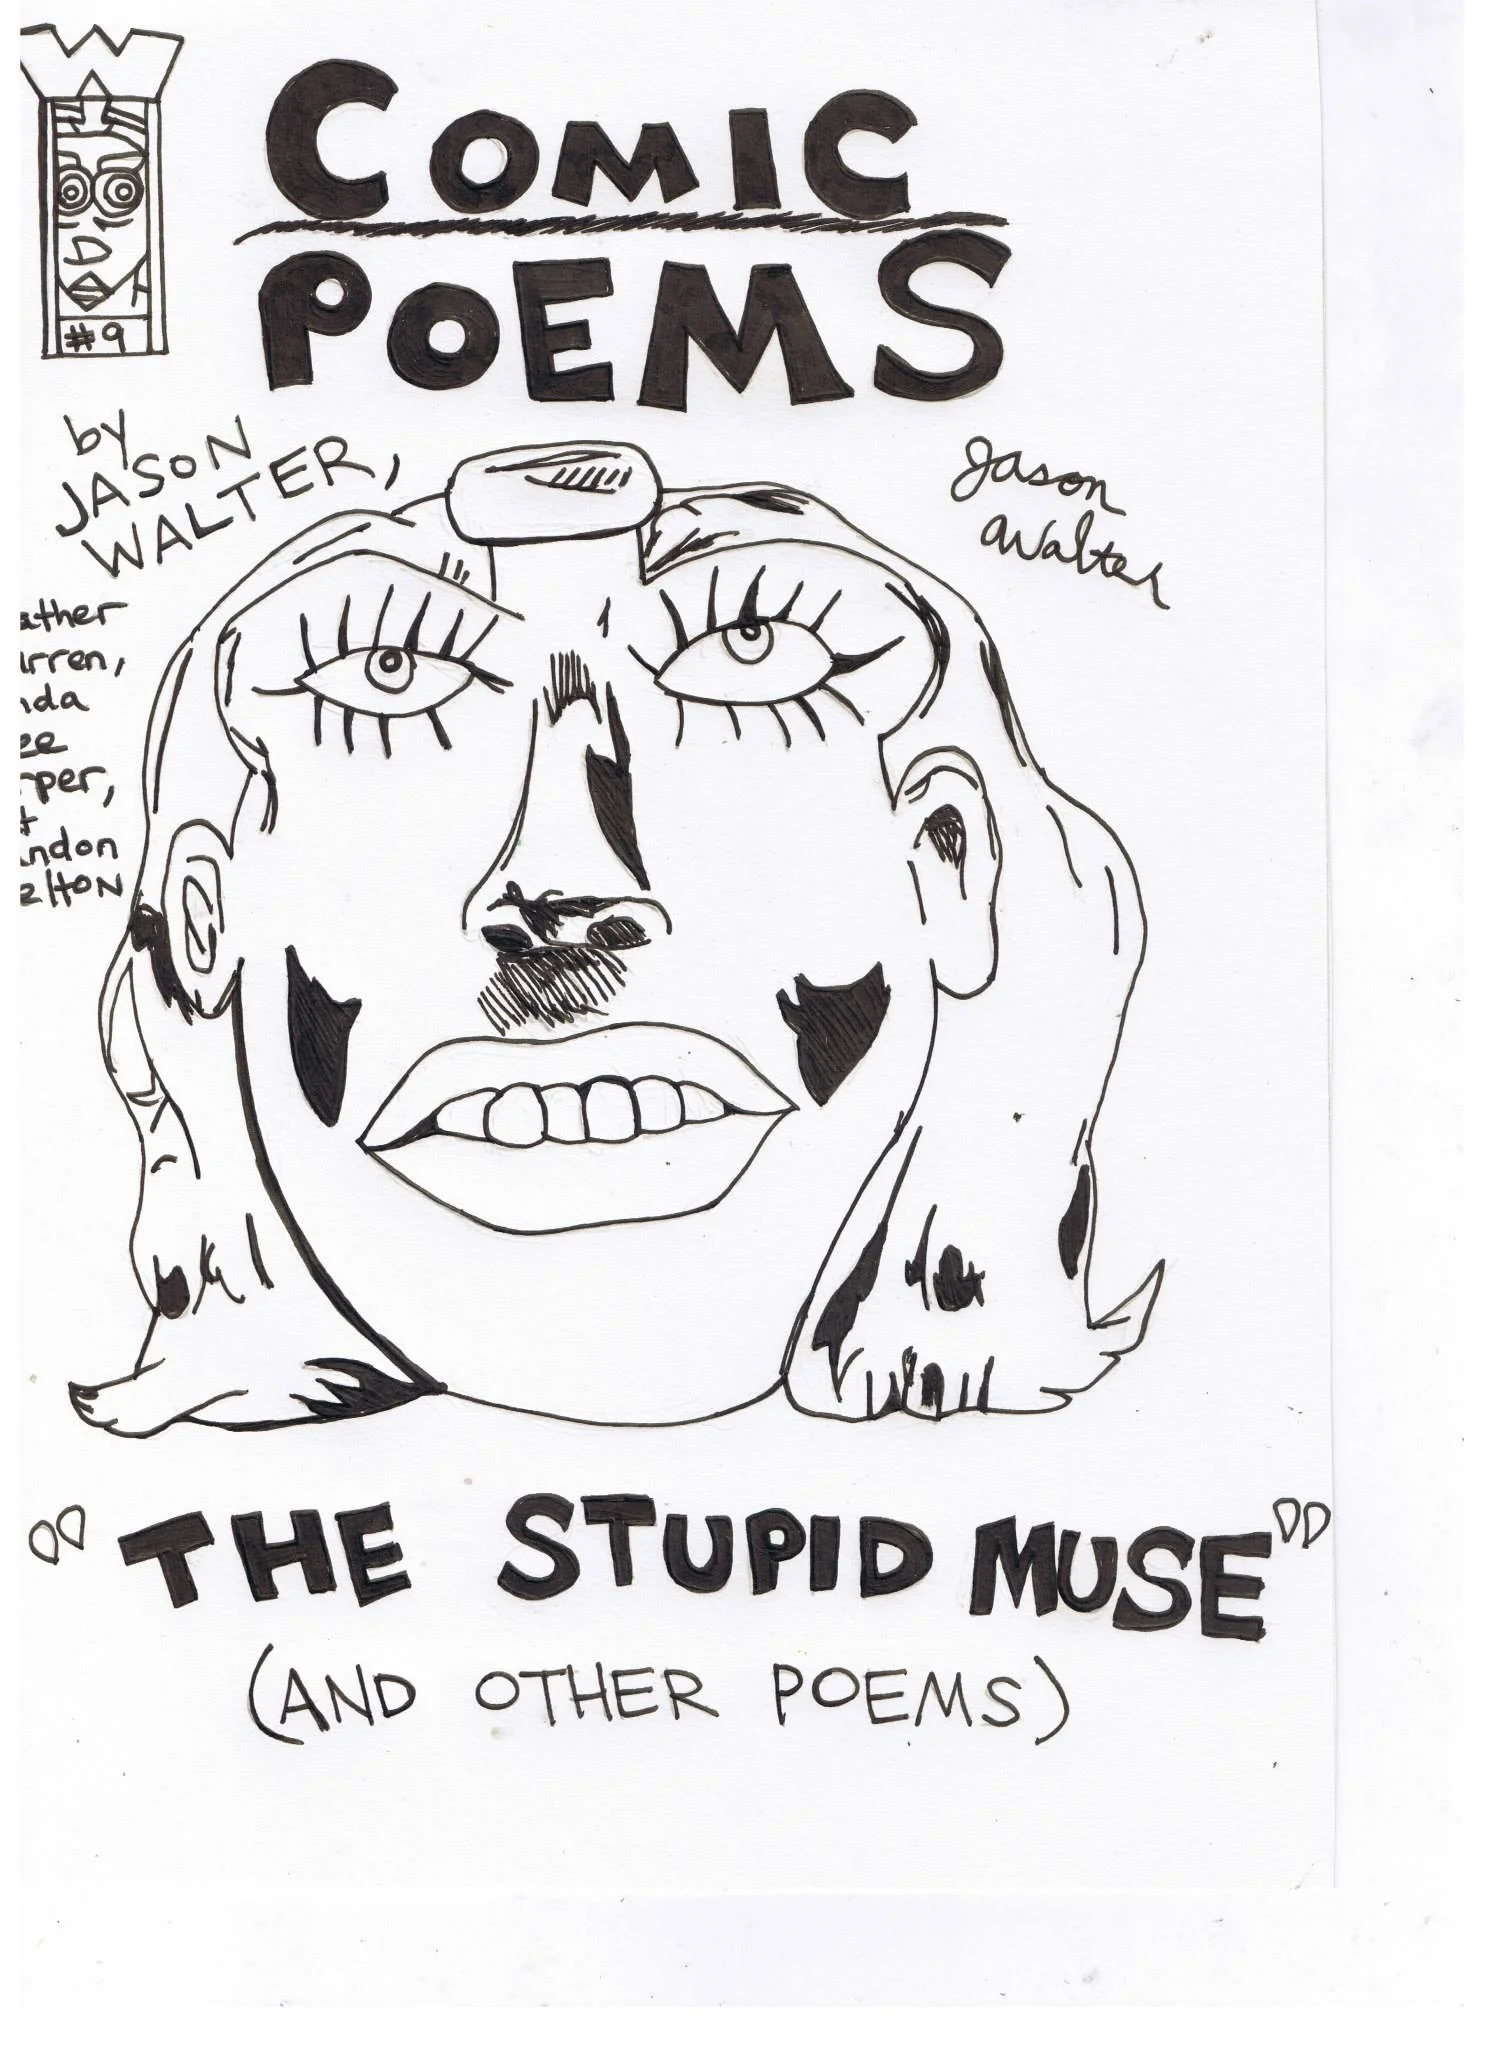 COMIC
POEMS
#9
by
JASON
WALTER,
Jason
Walter
ather
rren,
nda
ee
rper,
ndon
elton
"THE STUPID MUSE"
(AND OTHER POEMS)